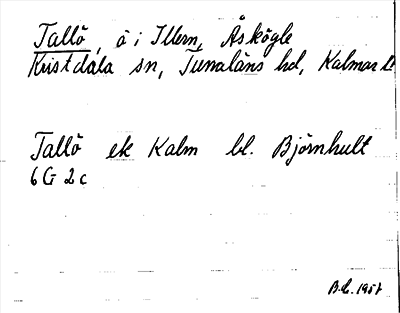 Tallö, ö i Illern, Åskögle
Kristdala sn, Tunaläns hd, Kalmar l.
Tallö ek Kalm bl. Björnhult
6 G 2 c
B.L. 1957